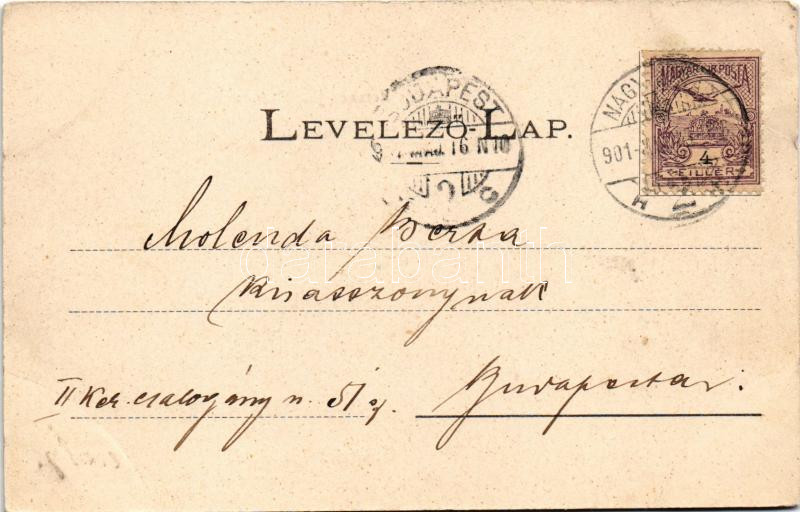 LEVELEZŐ-LAP.
BUDAPEST
16 N10
NAGY
901-
MAGYAR KIR. POSTA
4
FILLER
Molenda Berta
kisasszonynak
II Ker. csalogány u. 51 sz.
Budapesten.
darabanth